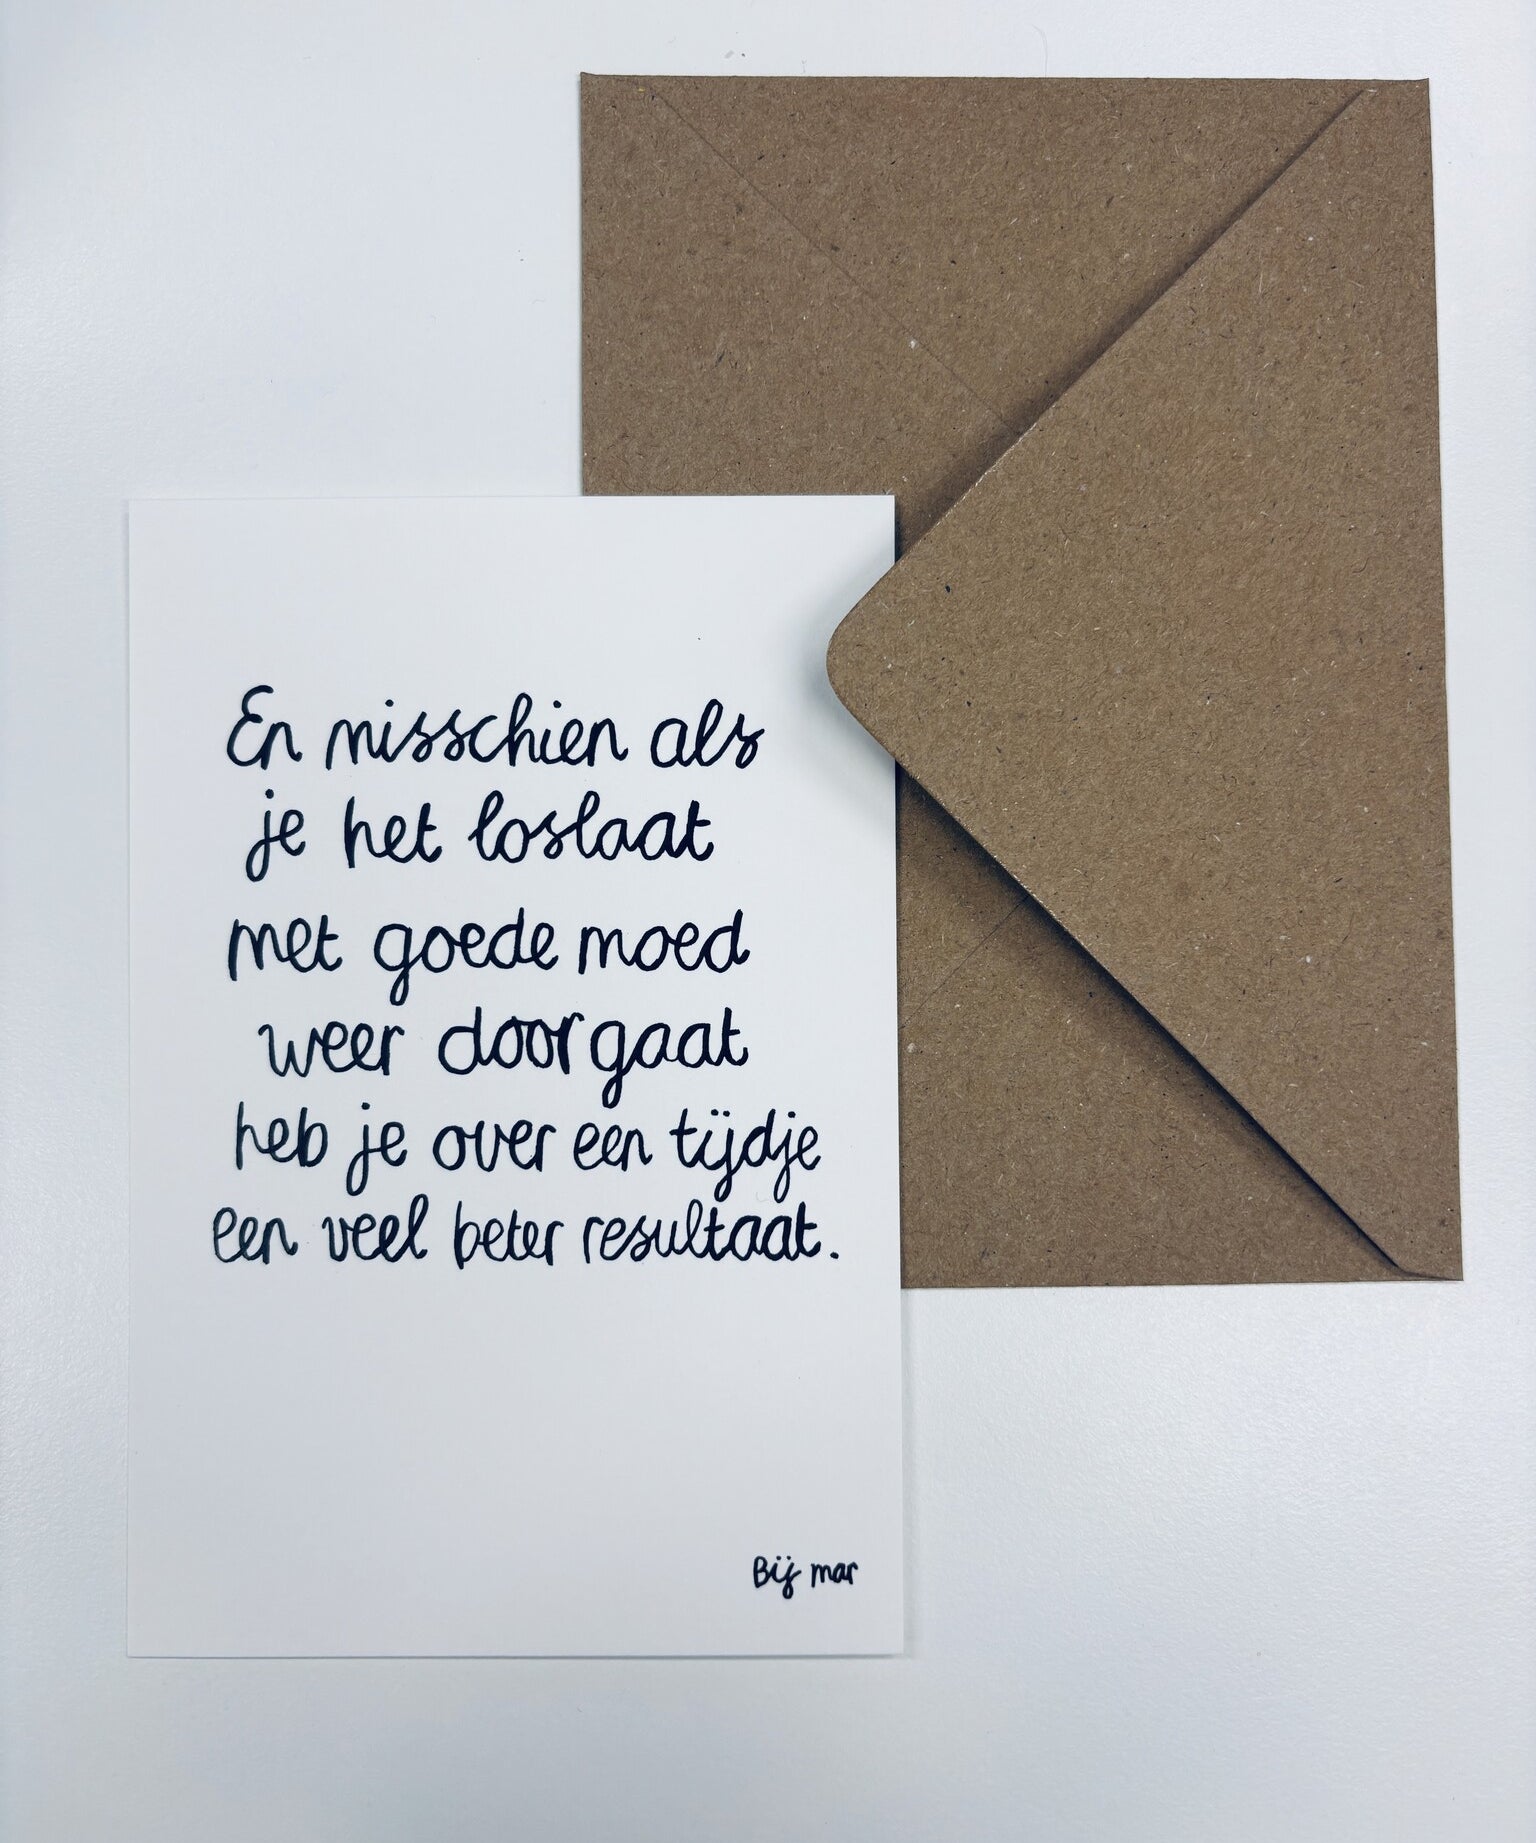 En misschien als
je het loslaat
met goede moed
weer doorgaat
heb je over een tijdje
een veel beter resultaat.
Bij mar